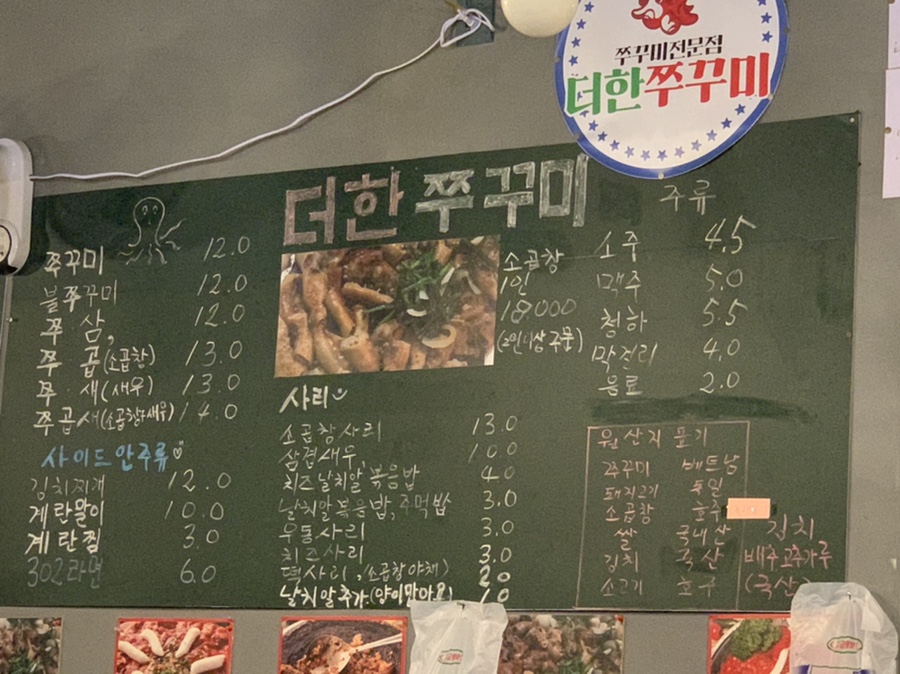 쭈꾸미전문점
더한쭈꾸미
더한 쭈꾸미
쭈꾸미 12.0
불쭈꾸미 12.0
쭈 삼, 12.0
쭈 곱(소곱창) 13.0
쭈 · 새(새우) 13.0
쭈곱새(소곱창+새우) 14.0
사이드안주류
김치찌개 12.0
계란말이 10.0
계란찜 3.0
302라면 6.0
소곱창
1인
18,000
(2인이상 주문)
사리
소곱창사리 13.0
삼겹새우 10.0
치즈날치알볶음밥 4.0
날치알볶음밥, 주먹밥 3.0
우동사리 3.0
치즈사리 3.0
떡사리, 소곱창야채) 2.0
날치알추가 1.0
주류
소주 4.5
맥주 5.0
청하 5.5
막걸리 4.0
음료 2.0
원산지 표기
쭈꾸미 베트남
돼지고기 독일
소곱창 호주
쌀 국내산
김치 국산
소고기 호주
김치
배추고추가루
(국산)